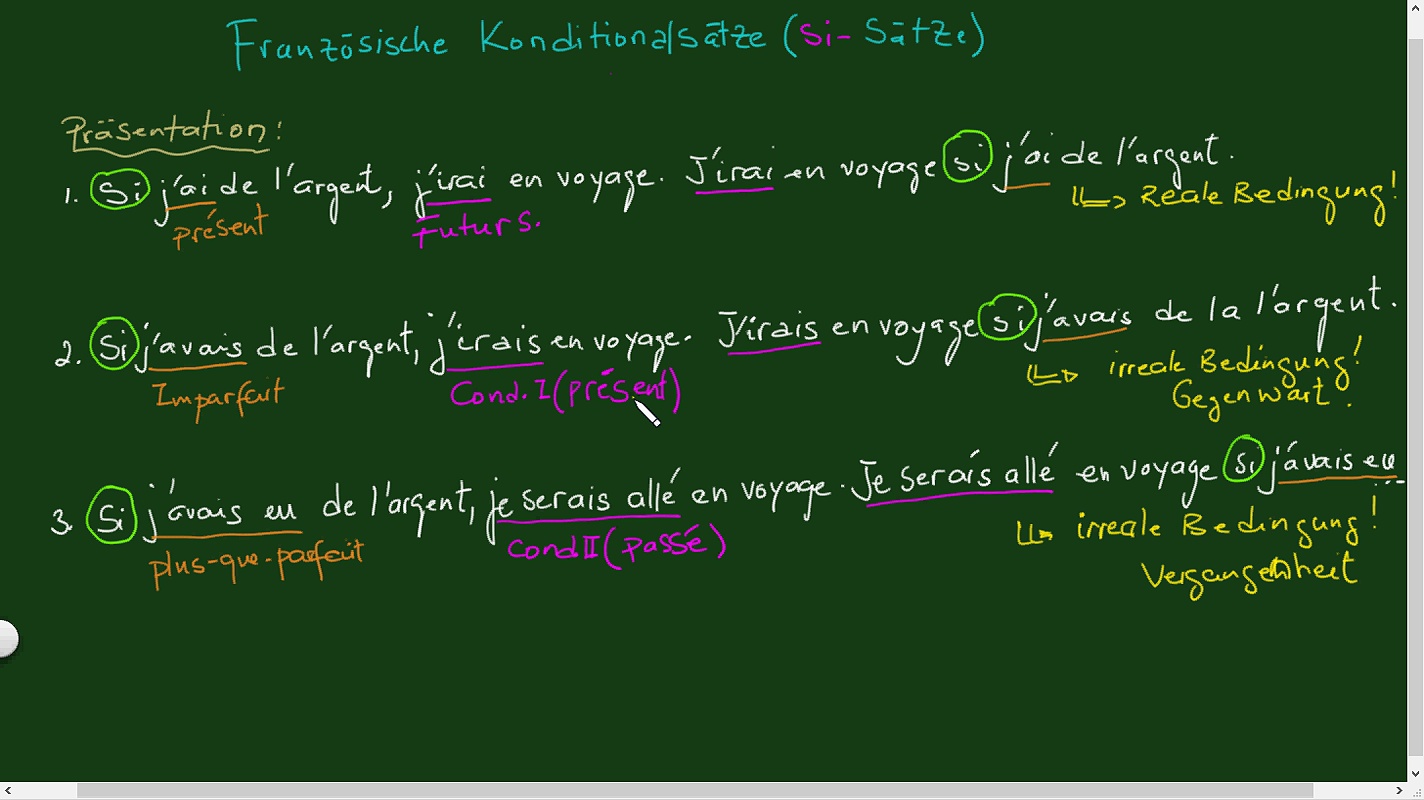 Französische Konditionalsätze (Si-Sätze)
Präsentation!
1. Si j'ai de l'argent, j'irai en voyage. J'irai en voyage si j'ai de l'argent.
présent Futur S. Reale Bedingung!
2. Si j'avais de l'argent, j'irais en voyage. J'irais en voyage si j'avais de la l'argent.
Imparfait Cond. I (présent) irreale Bedingung!
Gegenwart.
3. Si j'avais eu de l'argent, je serais allé en voyage. Je serais allé en voyage si j'avais eu...
plus-que-parfait Cond II (passé) irreale Bedingung!
Vergangenheit